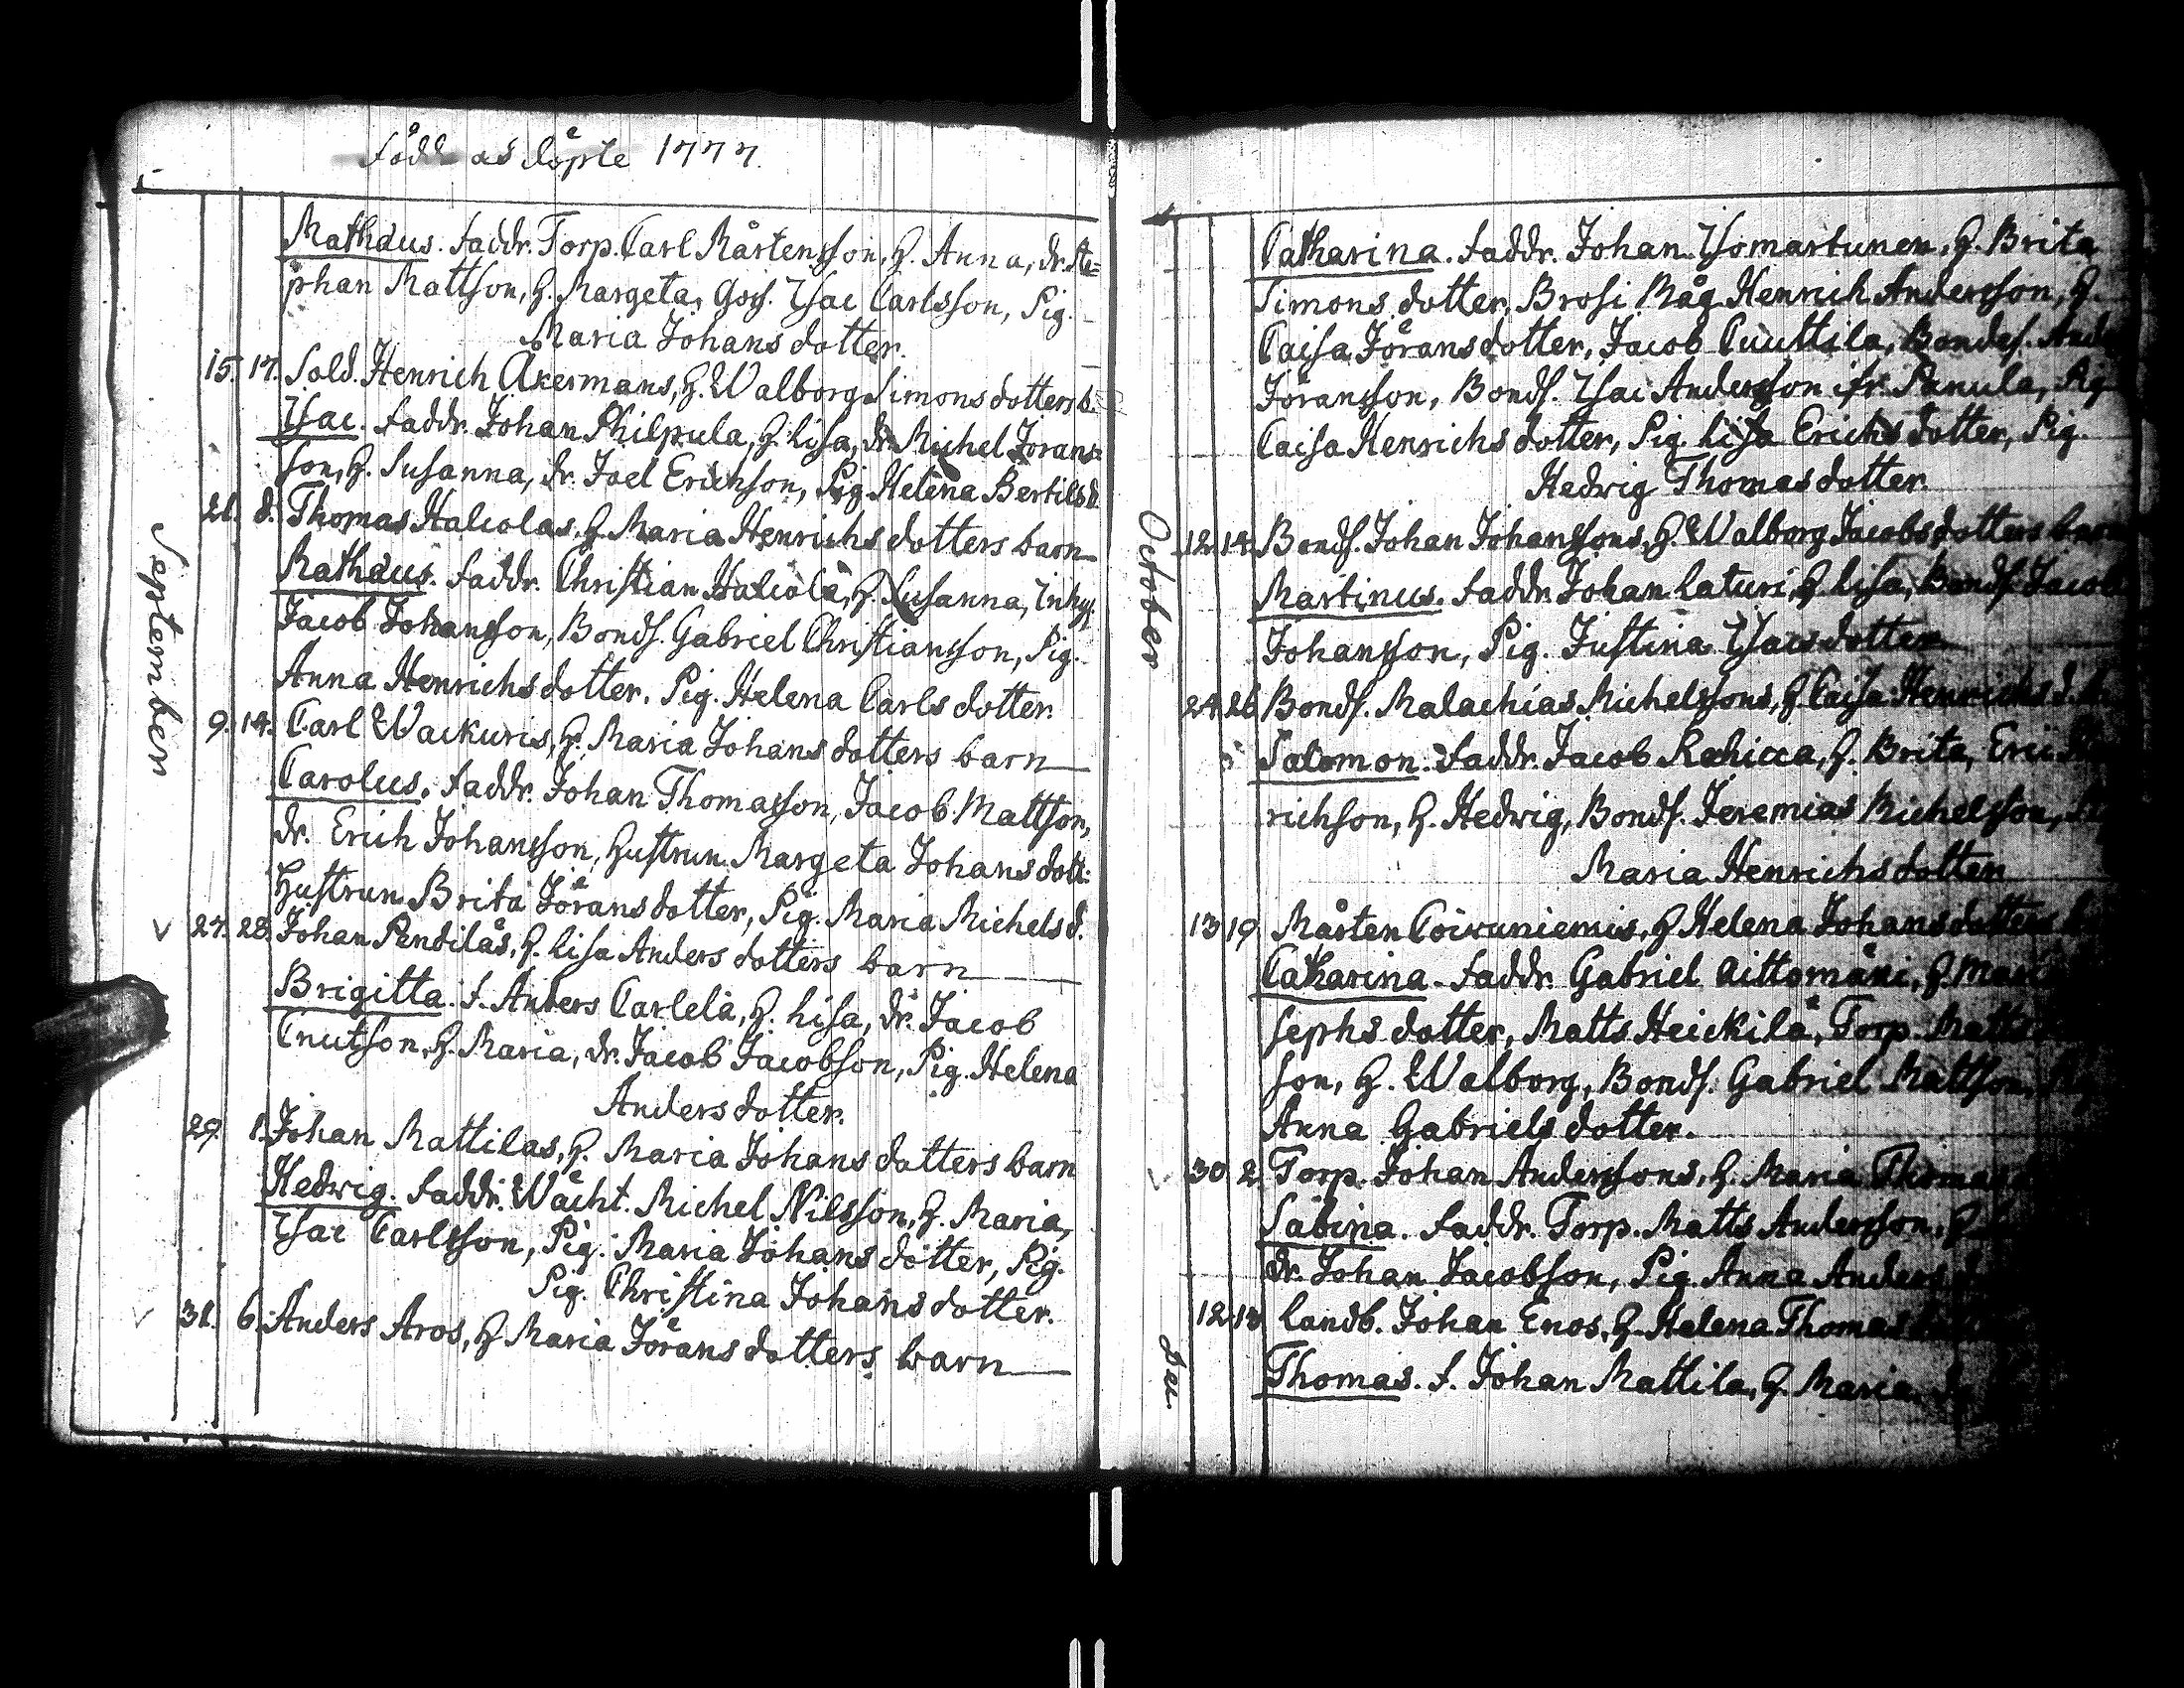 Född as döpte 1777.
Mathæus. Faddr. Torp. Carl Mårtensson, H. Anna, dr. Ste=
phan Mattson, H. Margeta, Goss. Isac Carlsson, Pig.
Maria Johans dotter.
September
15. 17. Sold. Henrich Akermans, H. Walborg Simons dotters b.
Isac. Faddr. Johan Philpula, H. Lisa, dr. Michel Jorans=
son, H. Susanna, dr. Joel Erichson, Pig. Helena Bertils d.
21. d. Thomas Halcolas, H. Maria Henrichs dotters barn
Mathæus. Faddr. Christian Halcola, H. Susanna, Inhys.
Jacob Johansson, Bonds. Gabriel Christiansson, Pig.
Anna Henrichs dotter. Pig. Helena Carls dotter.
9. 14. Carl Wackuris, H. Maria Johans dotters barn
Carolus. Faddr. Johan Thomasson, Jacob Mattson,
dr. Erich Johansson, Hustrun Margeta Johans dott:
Hustrun Brita Jörans dotter, Pig. Maria Michels d.
27. 28. Johan Pendiläs, H. Lisa Anders dotters barn
Brigitta. F. Anders Carlela, H. Lisa, dr. Jacob
Cnutson, H. Maria, dr. Jacob Jacobson, Pig. Helena
Anders dotter.
29. 1. Johan Mattilas, H. Maria Johans dotters barn
Hedwig. Faddr. Wächt. Michel Nilsson, H. Maria,
Isac Carlsson, Pig. Maria Johans dotter, Pig.
Pig. Christina Johans dotter.
31. 6. Anders Aros, H. Maria Jörans dotters barn
Catharina. Faddr. Johan Isomartunen, H. Brita
Simons dotter, Brosi Måg Henrich Andersson, H.
Caisa Jörans dotter, Jacob Cuuttila, Bondes.
Joransson, Bonds. Isac Andersson ifr. Panula, Pig
Caisa Henrichs dotter, Pig. Lisa Erichs dotter, Pig.
Hedwig Thomas dotter.
October
12. 14. Bonds. Johan Johanssons, H. Walborg Jacobs dotters barn
Martinus. Faddr. Johan Laturi, H. Lisa, Bonds. Jacob
Johansson, Pig. Justina Isacs dotter
24. 26. Bonds. Malachias Michelssons, H. Caisa Henrichs d.
Salomon. Faddr. Jacob Rahicca, H. Brita,
richson, H. Hedwig, Bonds. Jeremias Michelsson,
Maria Henrichs dotter
13 19 Mårten Coivuniemis, H Helena Johans dotters
Catharina. Faddr. Gabriel Aittomäki, H.
sephs dotter, Matts Heickilä, Torp.
son, H. Walborg, Bonds. Gabriel Mattson,
Anna Gabriels dotter.
30 2 Torp. Johan Anderssons, H. Maria Thomas
Sabina. Faddr. Torp. Matts Andersson, H
dr. Johan Jacobson, Pig. Anna Anders
12. 13 Landb. Johan Enos, H. Helena Thomas
Thomas. F. Johan Mattila, H. Maria